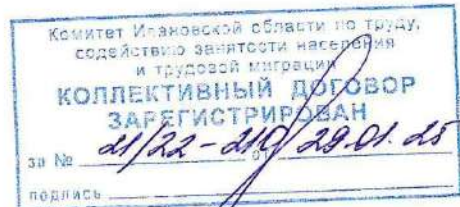 Комитет Ивановской области по труду,
содействию занятости населения
и трудовой миграции
КОЛЛЕКТИВНЫЙ ДОГОВОР
ЗАРЕГИСТРИРОВАН
за № 21/22-210 от 29.01.25
подпись